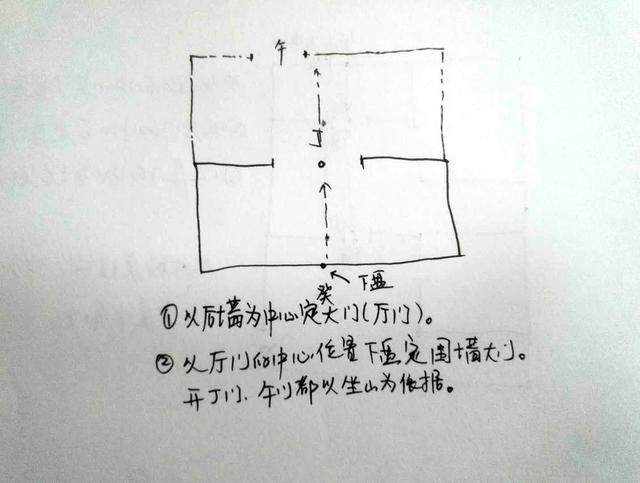 午
丁
癸
下盘
①以后墙为中心定大门(厅门)。
②以厅门的中心位置下盘定围墙大门。
开丁门、午门都以坐山为依据。